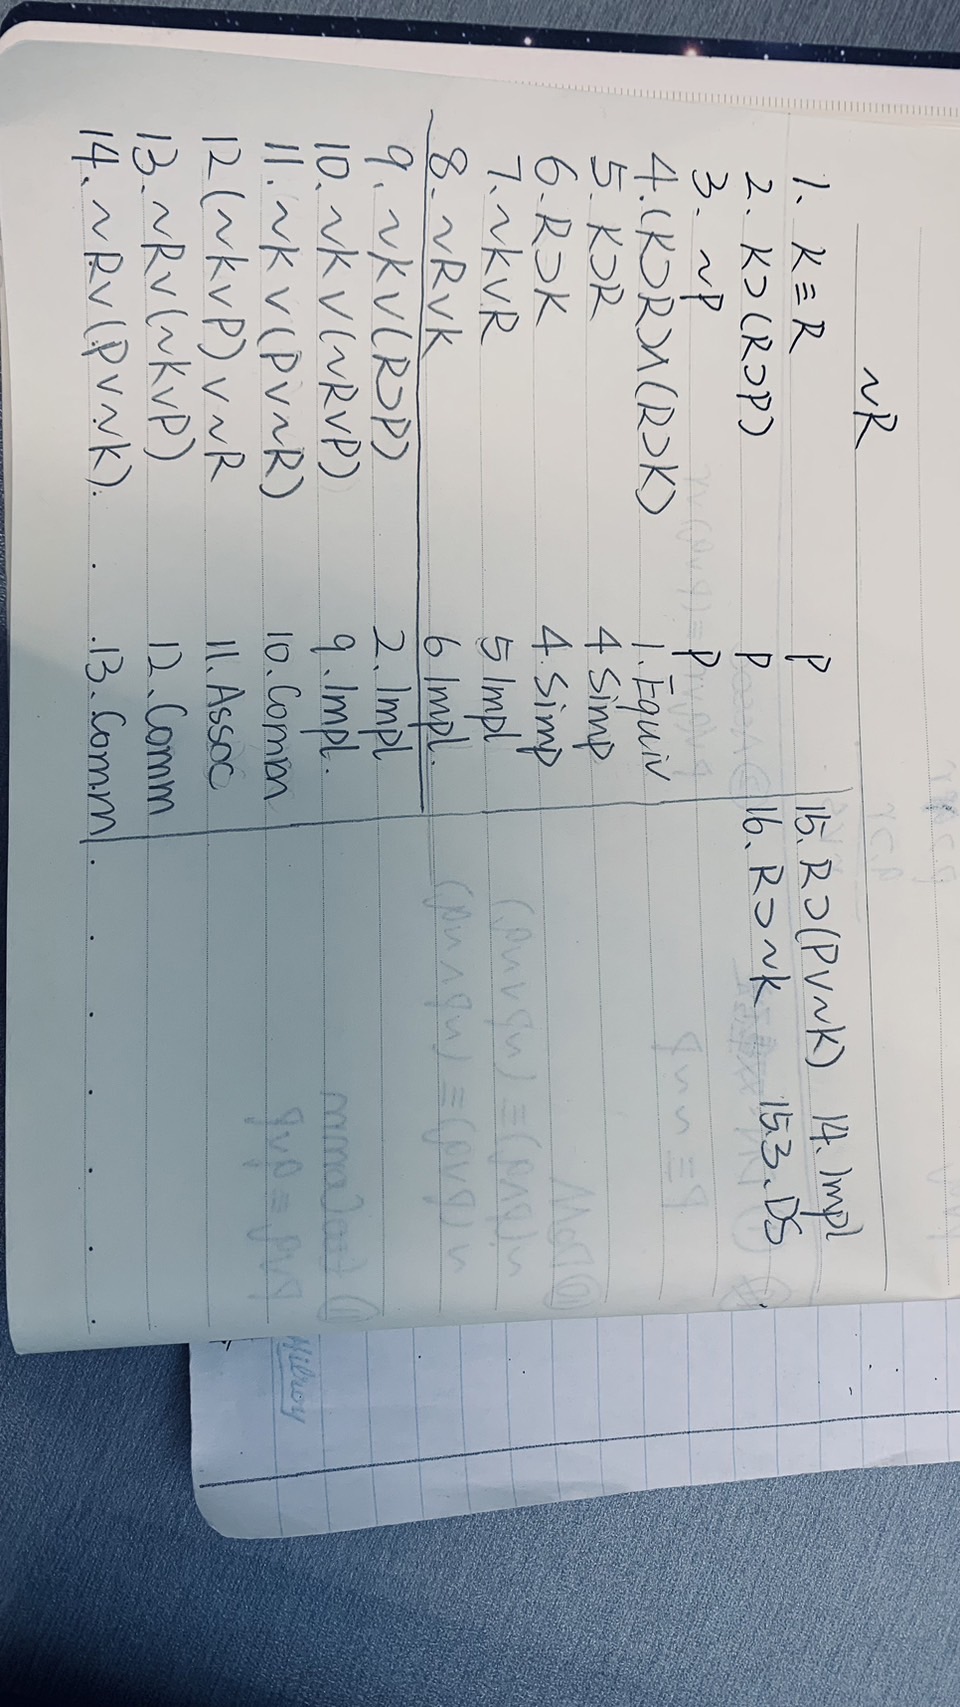 ~R
1. K≡R P
2. K⊃(R⊃P) P
3. ~P P
4. (K⊃R)∧(R⊃K) 1. Equiv
5. K⊃R 4 Simp
6. R⊃K 4. Simp
7. ~K∨R 5 Impl
8. ~R∨K 6 Impl.
9. ~K∨(R⊃P) 2. Impl
10. ~K∨(~R∨P) 9. Impl.
11. ~K∨(P∨~R) 10. Comm
12 (~K∨P)∨~R 11. Assoc
13. ~R∨(~K∨P) 12. Comm
14. ~R∨(P∨~K). 13. Comm
15. R⊃(P∨~K) 14. Impl
16. R⊃~K 15.3. DS
Hilroy